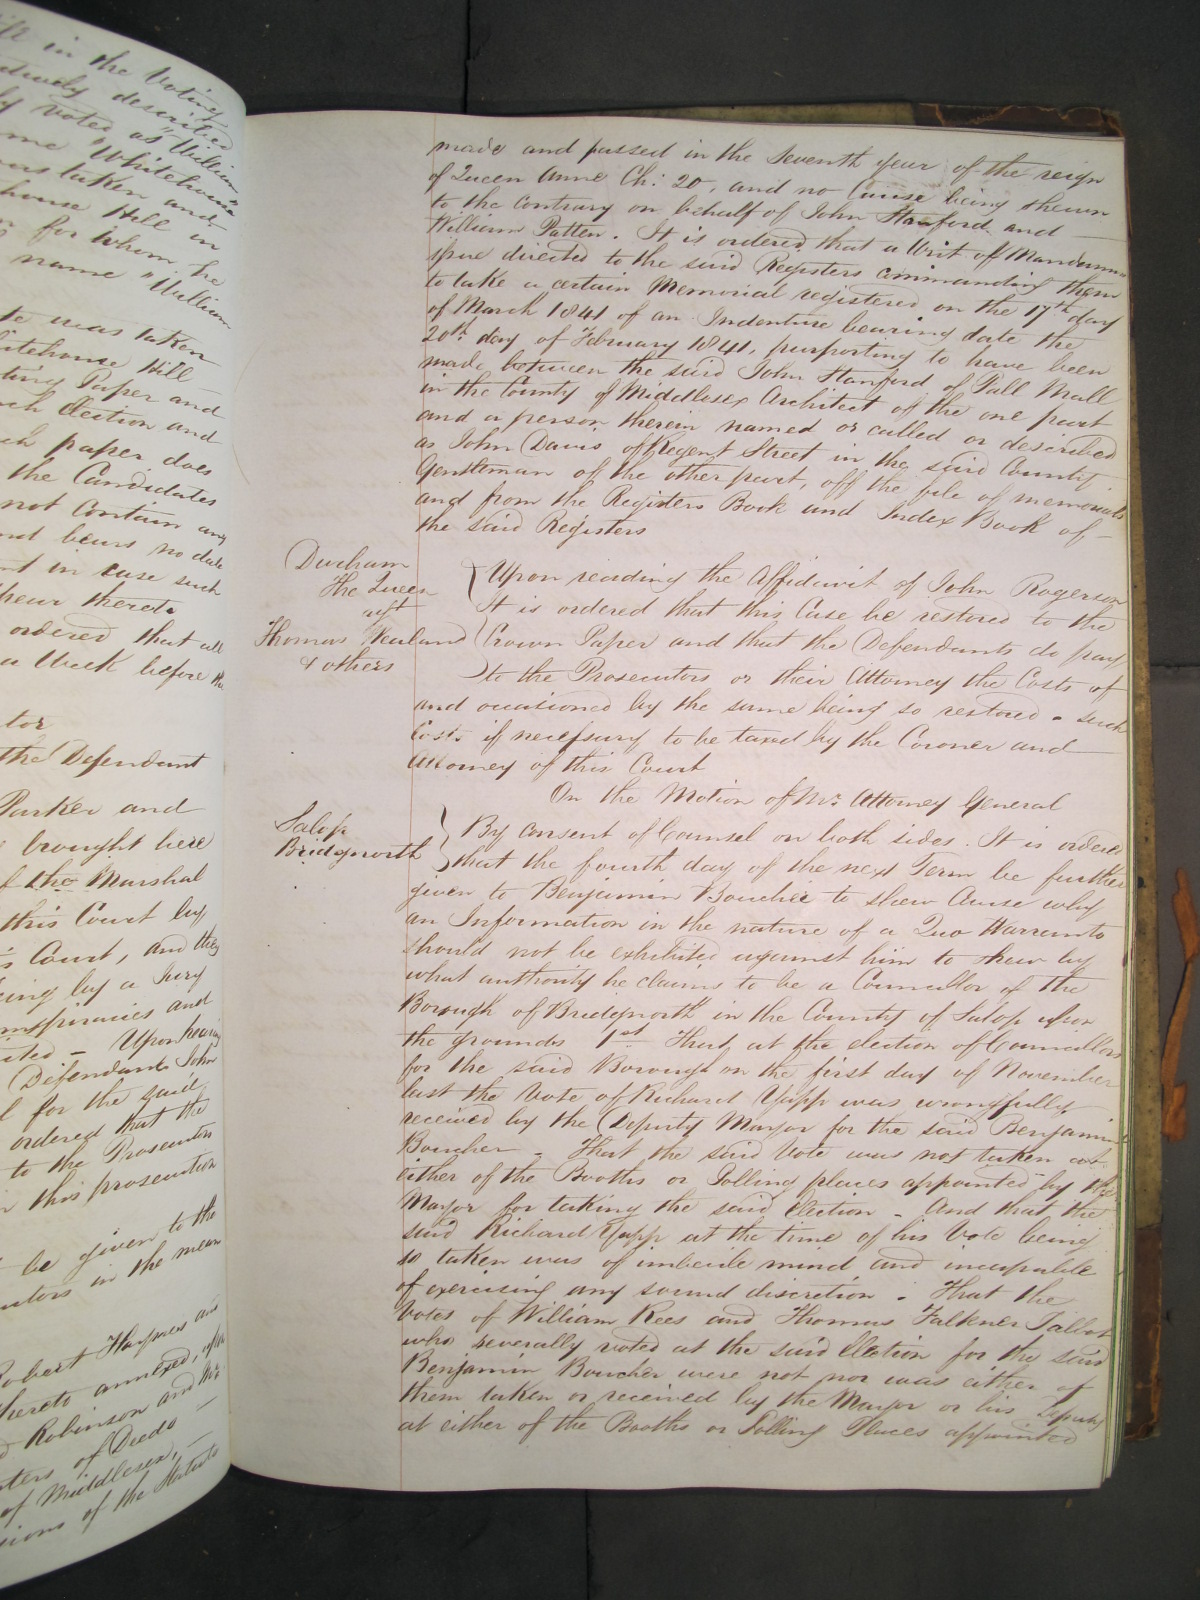 ife in the Voting
described
ly voted as "William
me "Whitehouse"
was taken and
house Hill in
n for whom he
name "William
te was taken
itehouse Hill
ting Paper and
ch Election and
ch paper does
the Candidates
not Contain any
nd bears no date
nt in case such
shewn thereto
ordered that all
a Week before the
tor
the Defendant
Parker and
brought here
f the Marshal
this Court by
's Court, and they
ing by a Jury
onspiracies and
ited - Upon hearing
Defendants John
l for the said
ordered that the
to the Prosecutors
n this prosecution
be given to the
utors in the mean
Robert Haynes and
hereto annexed, upon
d Robinson and Mr.
sters of Deeds
of Middlesex,
sions of the Statute
made and passed in the Seventh year of the reign
of Queen Anne Ch: 20, and no Cause being shewn
to the Contrary on behalf of John Stanford and
William Patten. It is ordered that a Writ of Mandamus
issue directed to the said Registers commanding them
to take a certain Memorial registered on the 17th day
of March 1841 of an Indenture bearing date the
20th day of February 1841, purporting to have been
made between the said John Stanford of Pall Mall
in the County of Middlesex Architect of the one part
and a person therein named or called or described
as John Davis of Regent Street in the said County
Gentleman of the other part, off the file of memorials
and from the Registers Book and Index Book of
the said Registers
Durham
The Queen
agst
Thomas Wearland
& others
Upon reading the Affidavit of John Rogerson
It is ordered that this Case be restored to the
Crown Paper and that the Defendants do pay
to the Prosecutors or their Attorney the Costs of
and occasioned by the same being so restored - such
Costs if necessary to be taxed by the Coroner and
Attorney of this Court
On the Motion of Mr. Attorney General
Salop
Bridgnorth
By consent of Counsel on both sides. It is ordered
that the fourth day of the next Term be further
given to Benjamin Boucher to shew Cause why
an Information in the nature of a Quo Warranto
should not be exhibited against him to shew by
what authority he claims to be a Councillor of the
Borough of Bridgnorth in the County of Salop upon
the grounds 1st That at the election of Councillors
for the said Borough on the first day of November
last the Vote of Richard Yapp was wrongfully
received by the Deputy Mayor for the said Benjamin
Boucher - That the said Vote was not taken at
either of the Booths or Polling places appointed by the
Mayor for taking the said Election - And that the
said Richard Yapp at the time of his Vote being
so taken was of imbecile mind and incapable
of exercising any sound discretion - That the
Votes of William Rees and Thomas Falkner Talbot
who severally voted at the said Election for the said
Benjamin Boucher were not nor was either of
them taken or received by the Mayor or his Deputy
at either of the Booths or Polling Places appointed